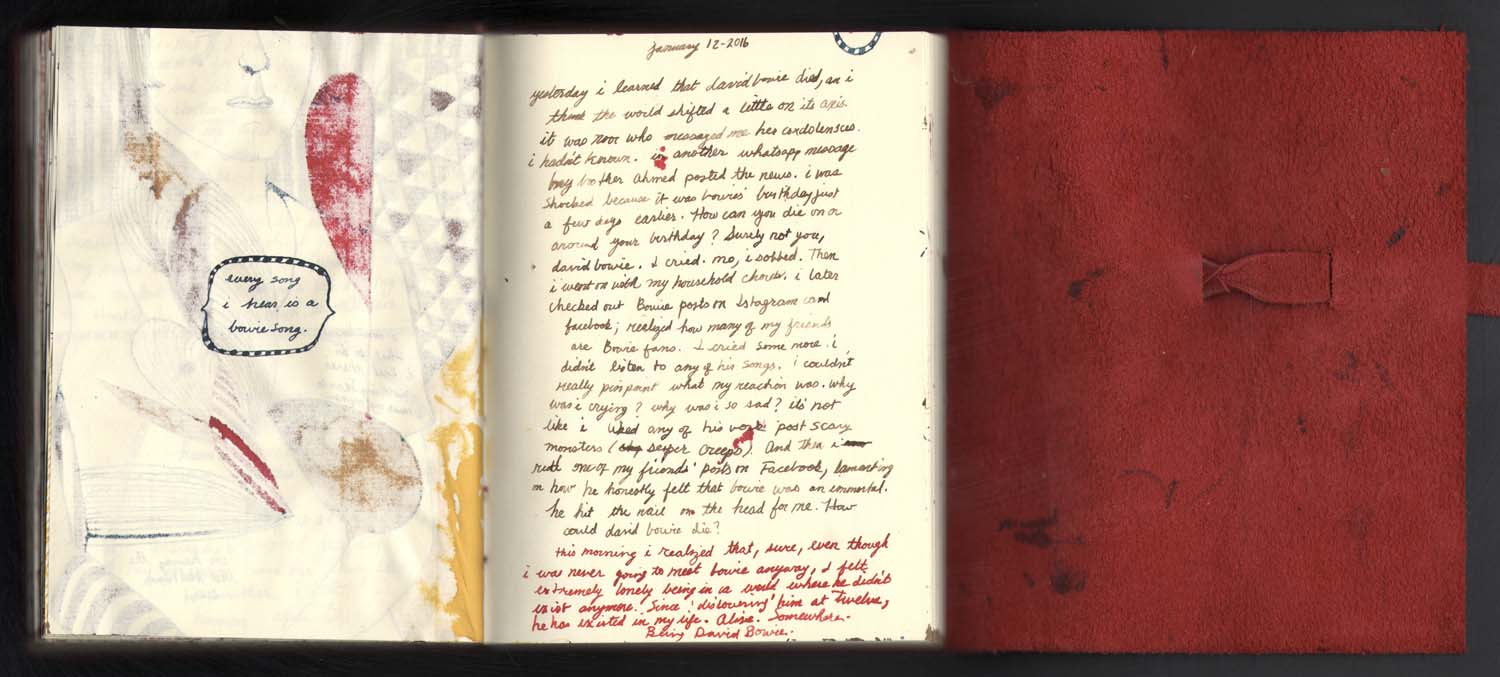 every song
i hear is a
bowie song.
january 12-2016
yesterday i learned that david bowie died, an i
think the world shifted a little on its axis.
it was noor who messaged me her condolensces.
i hadn't known. in another whatsapp message
my brother Ahmed posted the news. i was
shocked because it was bowies' birthday just
a few days earlier. How can you die on or
around your birthday? Surely not you,
david bowie. I cried. no, i sobbed. Then
i went on with my household chores. i later
checked out Bowie posts on Istagram and
facebook; realized how many of my friends
are Bowie fans. I cried some more. i
didn't listen to any of his songs. i couldn't
really pinpoint what my reaction was. why
was i crying? why was i so sad? its not
like i liked any of his work post scary
monsters (super creeps). And then i
read one of my friends' posts on Facebook, lamenting
on how he honestly felt that bowie was an immortal.
he hit the nail on the head for me. How
could david bowie die?
this morning i realized that, sure, even though
i was never going to meet bowie anyway, I felt
extremely lonely being in a world where he didn't
exist anymore. Since 'discovering' him at twelve,
he has existed in my life. Alive. Somewhere.
Being David Bowie.